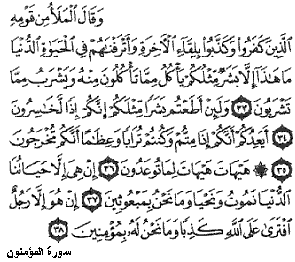 وَقَالَ ٱلْمَلَأُ مِن قَوْمِهِ
ٱلَّذِينَ كَفَرُوا۟ وَكَذَّبُوا۟ بِلِقَآءِ ٱلْـَٔاخِرَةِ وَأَتْرَفْنَٰهُمْ فِى ٱلْحَيَوٰةِ ٱلدُّنْيَا
مَا هَٰذَآ إِلَّا بَشَرٌ مِّثْلُكُمْ يَأْكُلُ مِمَّا تَأْكُلُونَ مِنْهُ وَيَشْرَبُ مِمَّا
تَشْرَبُونَ ٣٣ وَلَئِنْ أَطَعْتُم بَشَرًا مِّثْلَكُمْ إِنَّكُمْ إِذًا لَّخَٰسِرُونَ
٣٤ أَيَعِدُكُمْ أَنَّكُمْ إِذَا مِتُّمْ وَكُنتُمْ تُرَابًا وَعِظَٰمًا أَنَّكُم مُّخْرَجُونَ
٣٥ ۞ هَيْهَاتَ هَيْهَاتَ لِمَا تُوعَدُونَ ٣٦ إِنْ هِىَ إِلَّا حَيَاتُنَا
ٱلدُّنْيَا نَمُوتُ وَنَحْيَا وَمَا نَحْنُ بِمَبْعُوثِينَ ٣٧ إِنْ هُوَ إِلَّا رَجُلٌ
ٱفْتَرَىٰ عَلَى ٱللَّهِ كَذِبًا وَمَا نَحْنُ لَهُۥ بِمُؤْمِنِينَ ٣٨
سورة المؤمنون